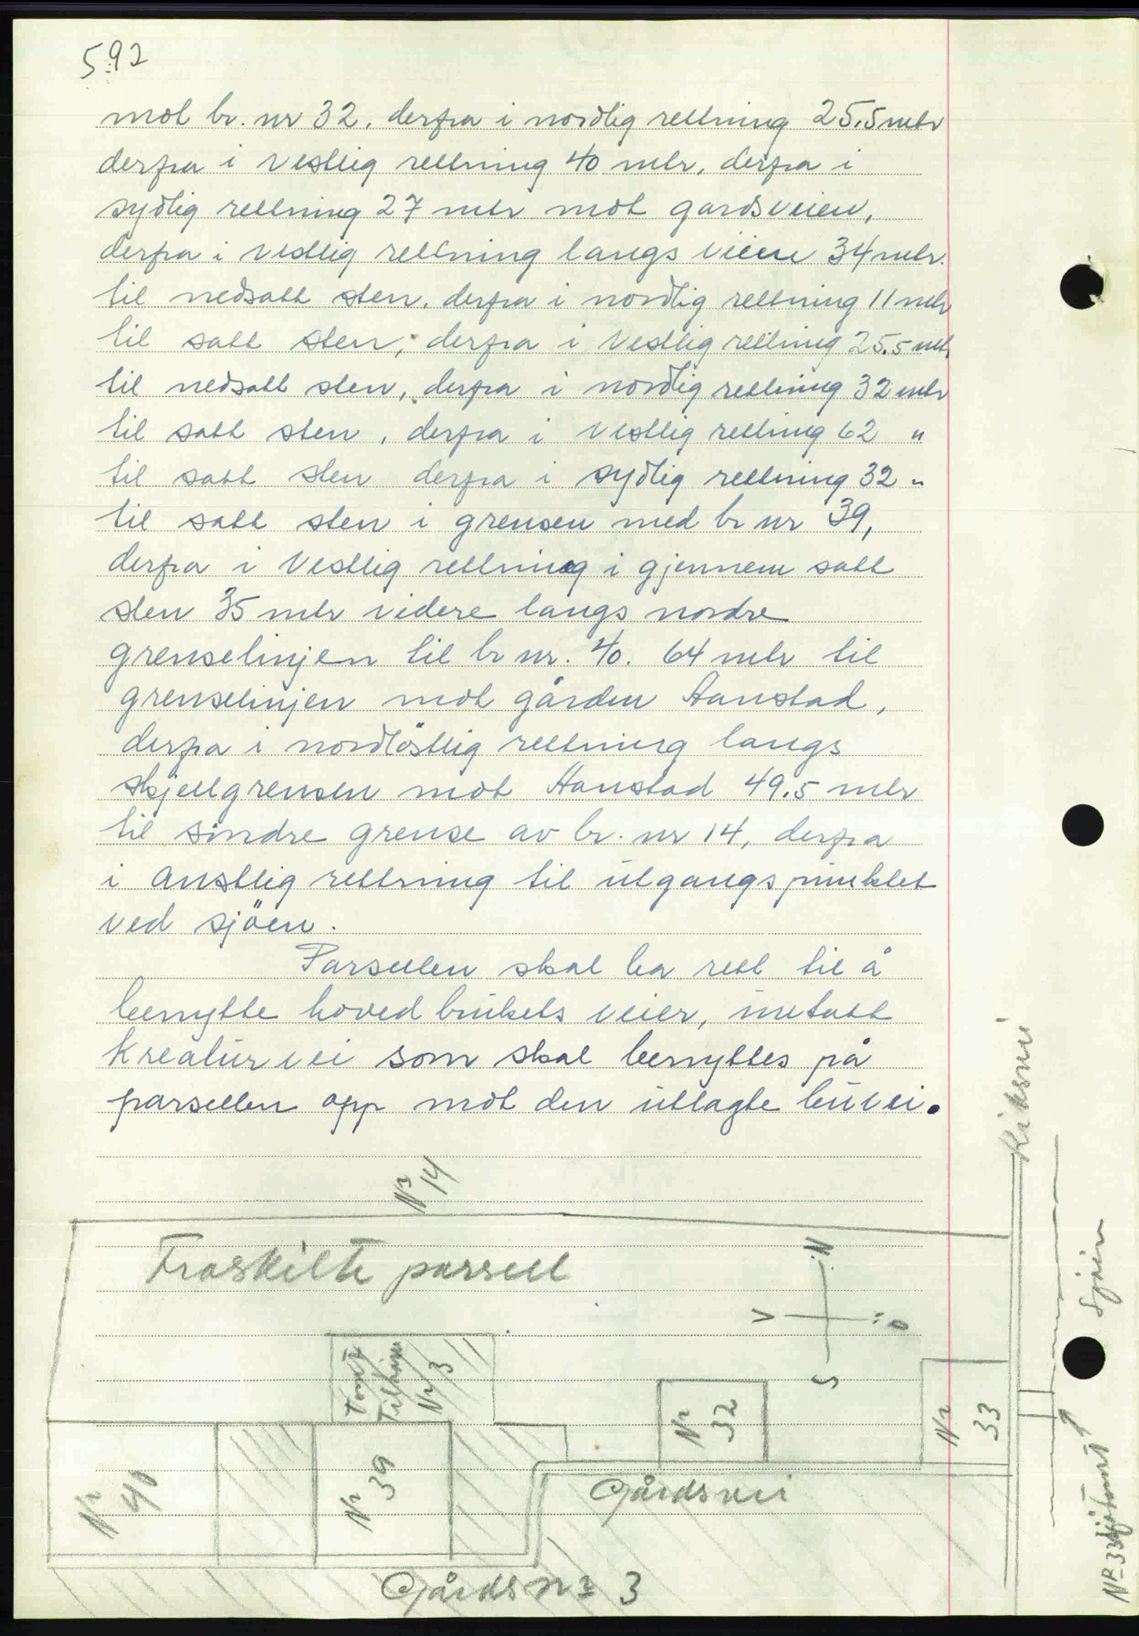 592
mot br. nr 32, derfra i nordlig rettning 25,5 mtr
derfra i vestlig rettning 40 mtr, derfra i
sydlig rettning 27 mtr mot gardsveien,
derfra i vestlig rettning langs veien 34 mtr.
til nedsatt sten, derfra i nordlig rettning 11 mtr
til satt sten, derfra i vestlig rettning 25,5 mtr
til nedsatt sten, derfra i nordlig rettning 32 mtr
til satt sten, derfra i vestlig rettning 62 "
til satt sten derfra i sydlig rettning 32 "
til satt sten i grensen med br nr 39,
derfra i Vestlig rettning i gjennem satt
sten 35 mtr videre langs nordre
grenselinjen til br nr. 40. 64 mtr til
grenselinjen mot gården Aanstad,
derfra i nordöstlig rettning langs
skjellgrensen mot Aanstad 49.5 mtr
til söndre grense av br. nr 14, derfra
i austlig rettning til utgangspunktet
ved sjöen.
Parsellen skal ha rett til å
benytte hovedbrukets veier, untatt
kreaturvei som skal benyttes på
parsellen opp mot den utlagte buvei.
Nr 14
Riksvei
Fraskilte parsell
N
V
Ö
S
Sjöen
Tomt
Tilhörer
Nr 3
Nr 32
Nr 33
Nr 40
Nr 39
Gårdsvei
Nr 33 sjötomt
Gårdsnr 3